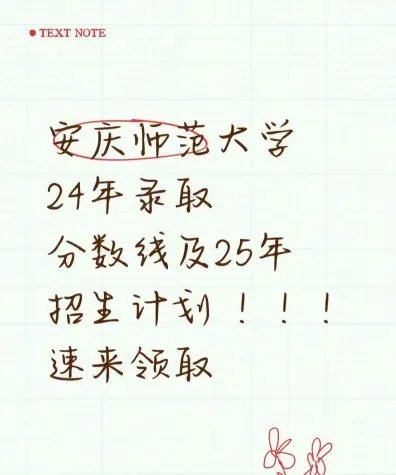 TEXT NOTE
安庆师范大学
24年录取
分数线及25年
招生计划！！！
速来领取